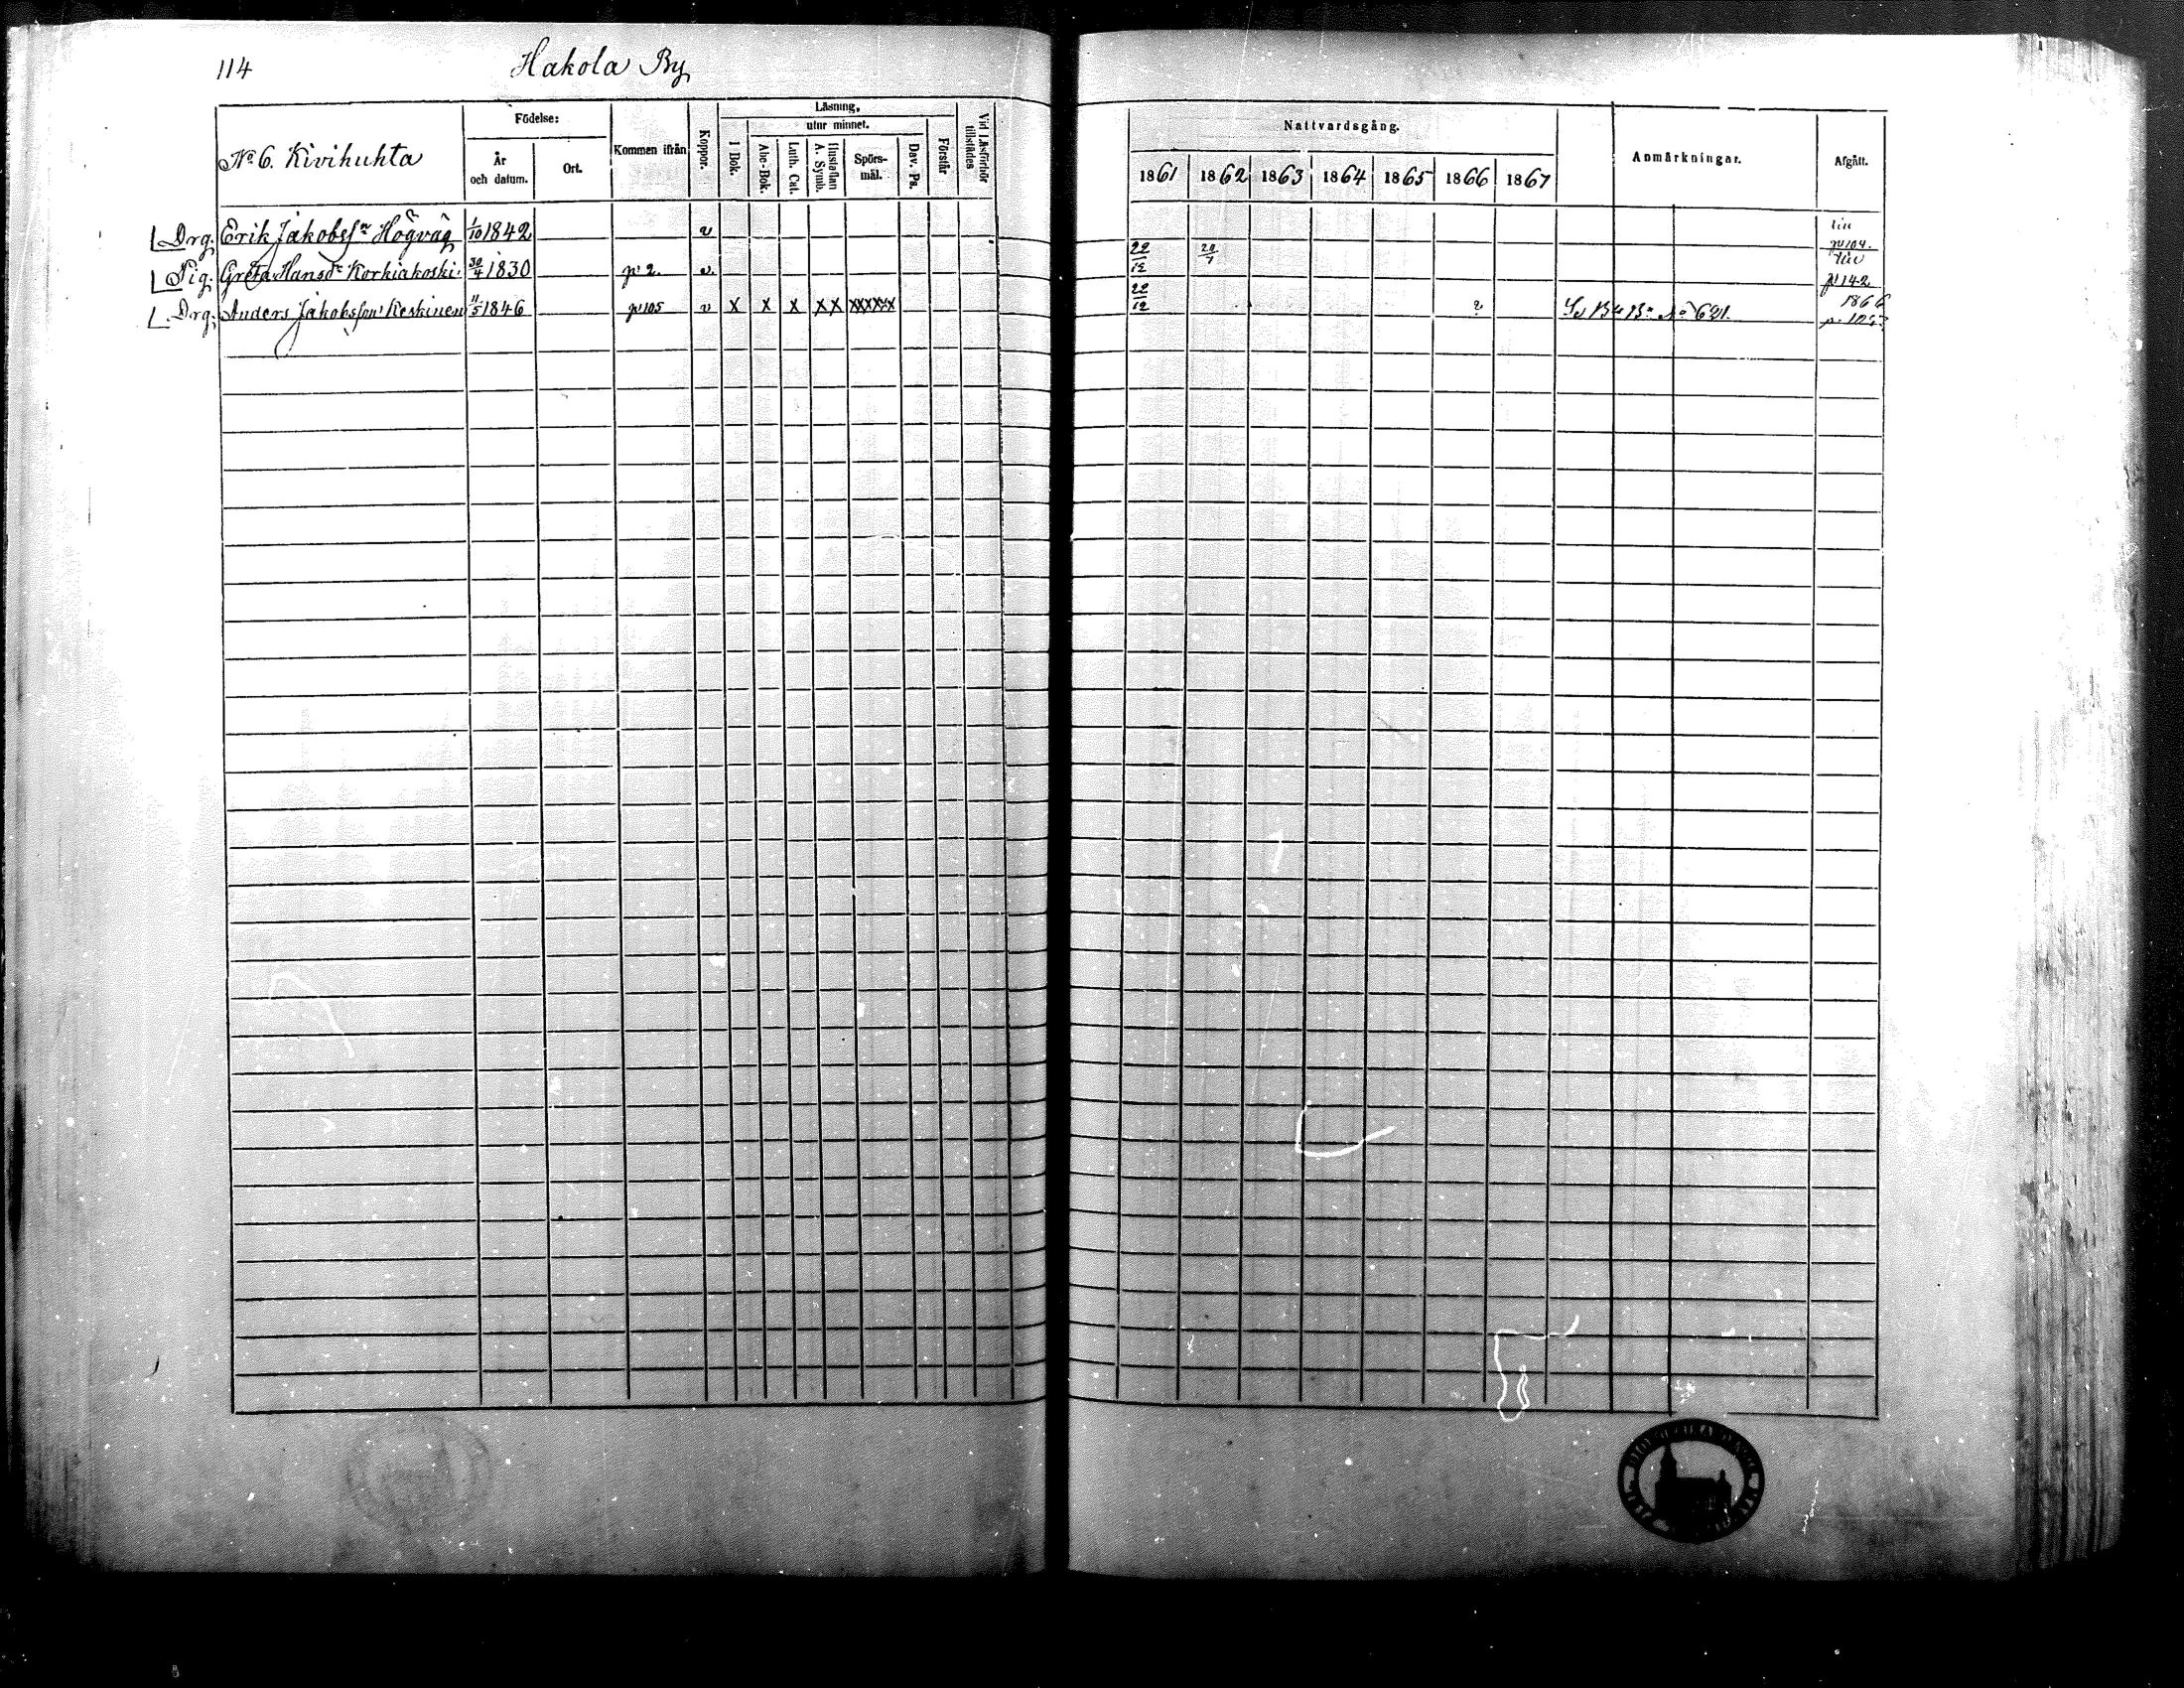 114
Hakola By
No 6. Kivihuhta
Födelse:
År
och datum.
Ort.
Kommen ifrån
Koppor.
Läsning,
utur minnet.
I Bok.
Abc-Bok.
Luth. Cat.
Hustaflan
A. Symb.
Spörs-
mål.
Dav. Ps.
Förstår
Vid Läsförhör
tillstädes
Nattvardsgång.
1861 1862 1863 1864 1865 1866 1867
Anmärkningar.
Afgått.
Drg. Erik Jakobssn Högväg 1/10 1842 v
p 104.
Pig. Greta Hansd. Korkiakoski 30/4 1830 p. 2. v. 22/12 20/7
p 142
Drg. Anders Jakobsson Keskinen 11/5 1846 p 105 v X X X XX XXXXXX 22/12
No 621.
1866